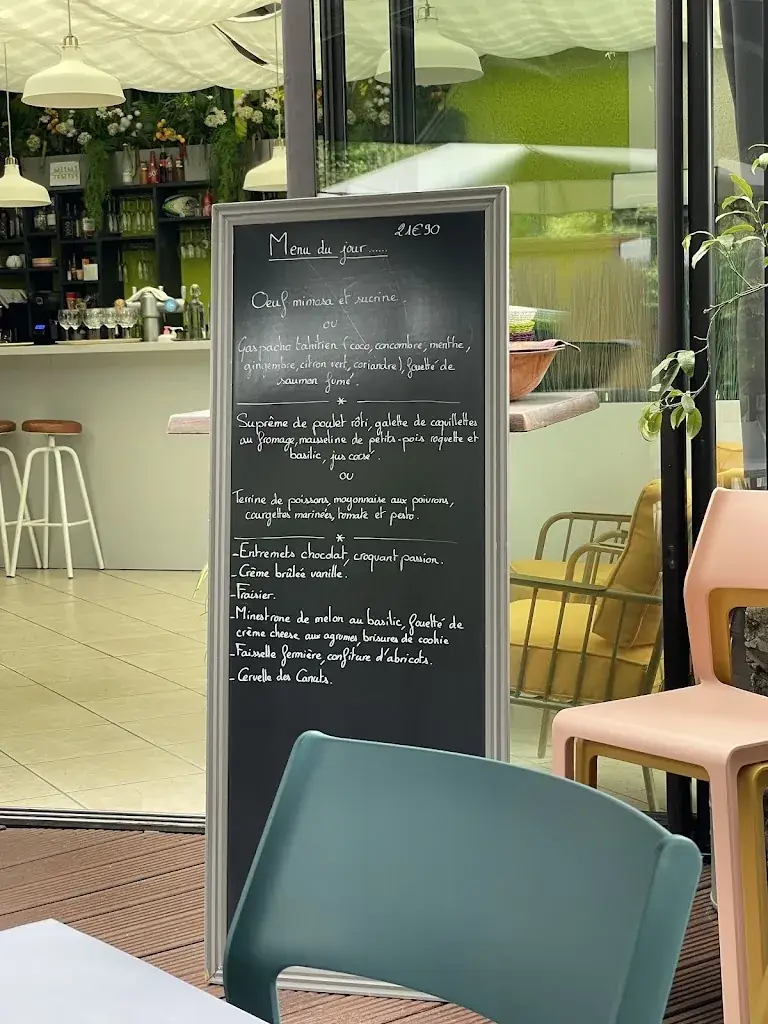 21€90
Menu du jour......
Oeuf mimosa et sucrine.
ou
Gaspacho tahitien (coco, concombre, menthe,
gingembre, citron vert, coriandre), fouetté de
saumon fumé.
*
Suprême de poulet rôti, galette de coquillettes
au fromage, mousseline de petits-pois roquette et
basilic, jus corsé.
ou
Terrine de poissons, mayonnaise aux poivrons,
courgettes marinées, tomate et pesto.
*
-Entremets chocolat, croquant passion.
-Crème brûlée vanille.
-Fraisier.
-Minestrone de melon au basilic, fouetté de
crème cheese aux agrumes, brisures de cookie
-Faisselle fermière, confiture d'abricots.
- Cervelle des Canuts.